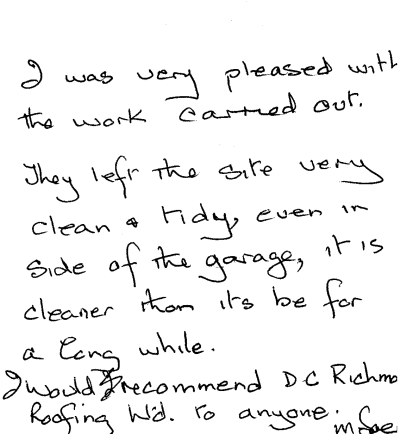 I was very pleased with
the work carried out.
They left the site very
clean & tidy, even in
side of the garage, it is
cleaner than its be for
a long while.
I would recommend DC Richmo
Roofing to anyone.